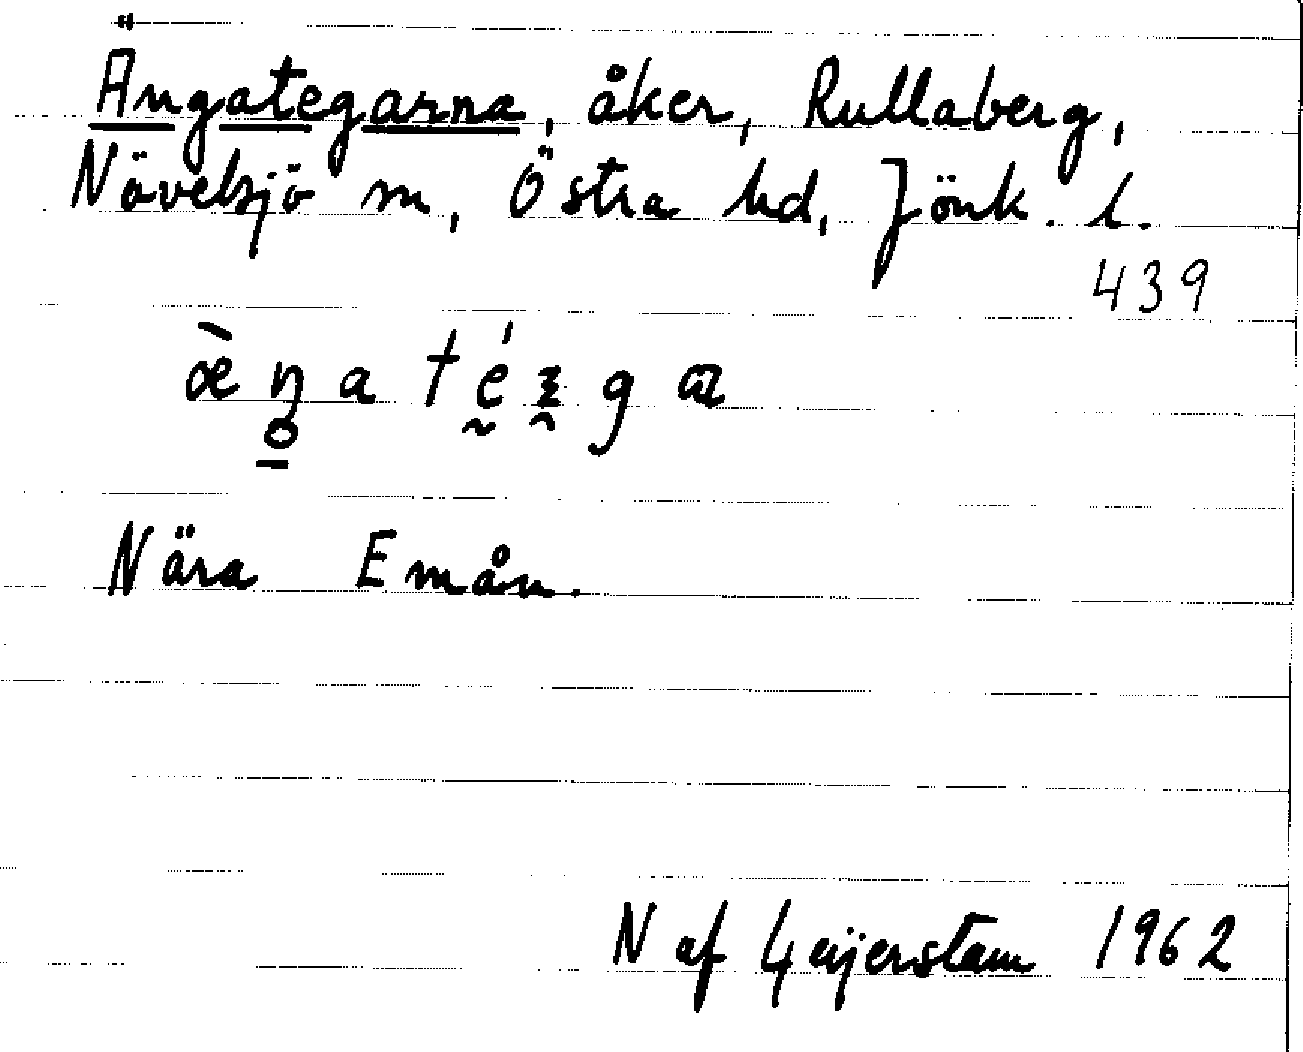 Ängategarna, åker, Rullaberg,
Nävelsjö sn, Östra hd, Jönk. l.
439
Nära Emån.
N af Geijerstam 1962